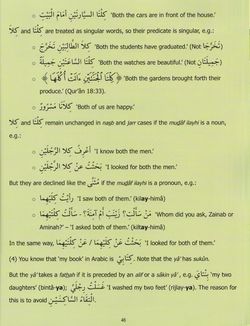 o كِلْتَا السَّيَّارَتَيْنِ أَمَامَ الْبَيْتِ 'Both the cars are in front of the house.'
كِلَا and كِلْتَا are treated as singular words, so their predicate is singular, e.g.:
o كِلَا الطَّالِبَيْنِ تَخَرَّجَ 'Both the students have graduated.' (Not تَخَرَّجَا)
o كِلْتَا السَّاعَتَيْنِ جَمِيلَةٌ 'Both the watches are beautiful.' (Not جَمِيلَتَانِ)
o ﴿كِلْتَا الْجَنَّتَيْنِ ءَاتَتْ أُكُلَهَا﴾ 'Both the gardens brought forth their
produce.' (Qur'ân 18:33).
o كِلَانَا مَسْرُورٌ 'Both of us are happy.'
كِلَا and كِلْتَا remain unchanged in naṣb and jarr cases if the muḍâf ilayhi is a noun,
e.g.:
o أَعْرِفُ كِلَا الرَّجُلَيْنِ 'I know both the men.'
o بَحَثْتُ عَنْ كِلَا الرَّجُلَيْنِ 'I looked for both the men.'
But they are declined like the مُثَنَّى if the muḍâf ilayhi is a pronoun, e.g.:
o رَأَيْتُ كِلَيْهِمَا 'I saw both of them.' (kilay-himâ)
o مَنْ سَأَلْتِ؟ زَيْنَبَ أَمْ آمِنَةَ؟ - سَأَلْتُ كِلْتَيْهِمَا 'Whom did you ask, Zainab or
Aminah?' – 'I asked both of them.' (kiltay-himâ)
In the same way, بَحَثْتُ عَنْ كِلَيْهِمَا / عَنْ كِلْتَيْهِمَا 'I looked for both of them.'
(4) You know that 'my book' in Arabic is كِتَابِي. Note that the yâ' has sukûn.
But the yâ' takes a fatḥah if it is preceded by an alif or a sâkin yâ', e.g. بِنْتَايَ 'my two
daughters' (bintâ-ya); غَسَلْتُ رِجْلَيَّ 'I washed my two feet' (rijlay-ya). The reason for
this is to avoid الْتِقَاءُ السَّاكِنَيْنِ.
46